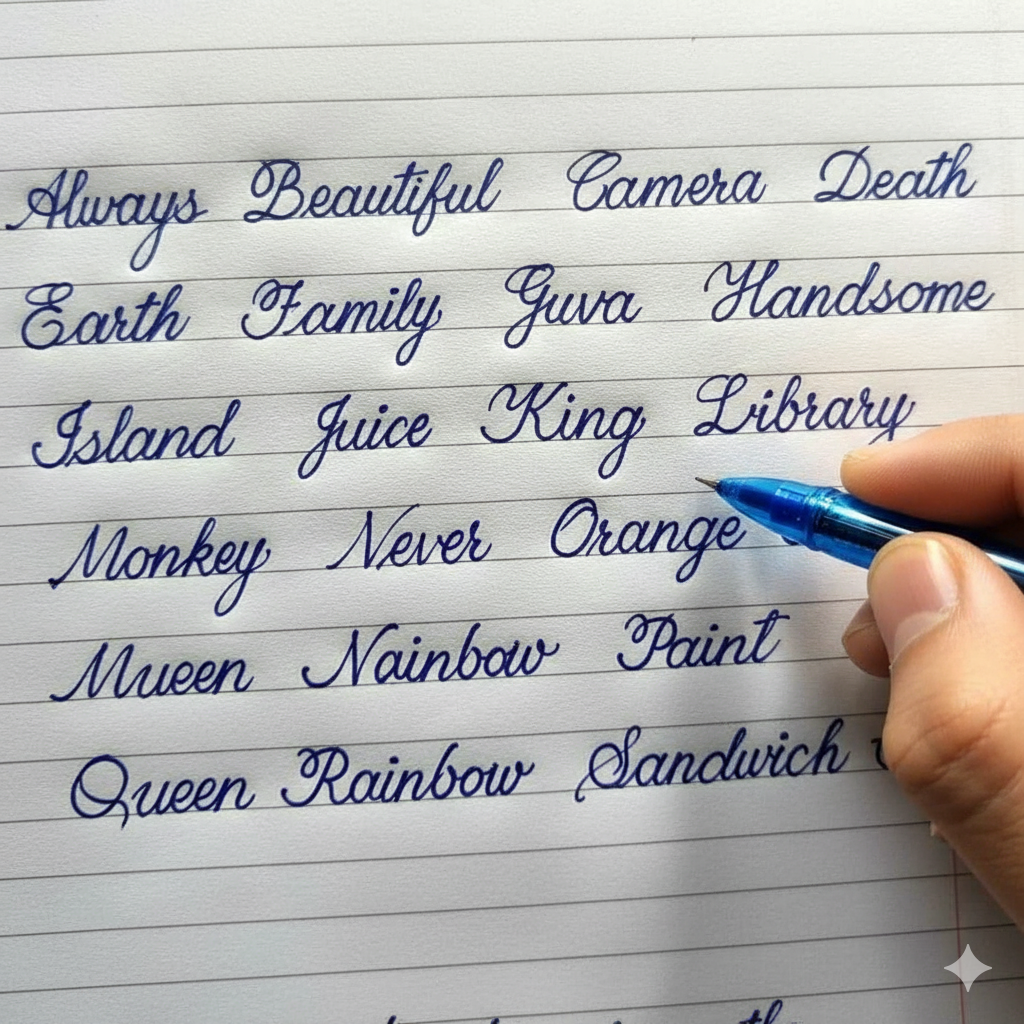 Always Beautiful Camera Death
Earth Family Guva Handsome
Island Juice King Library
Monkey Never Orange
Mueen Nainbow Paint
Queen Rainbow Sandwich